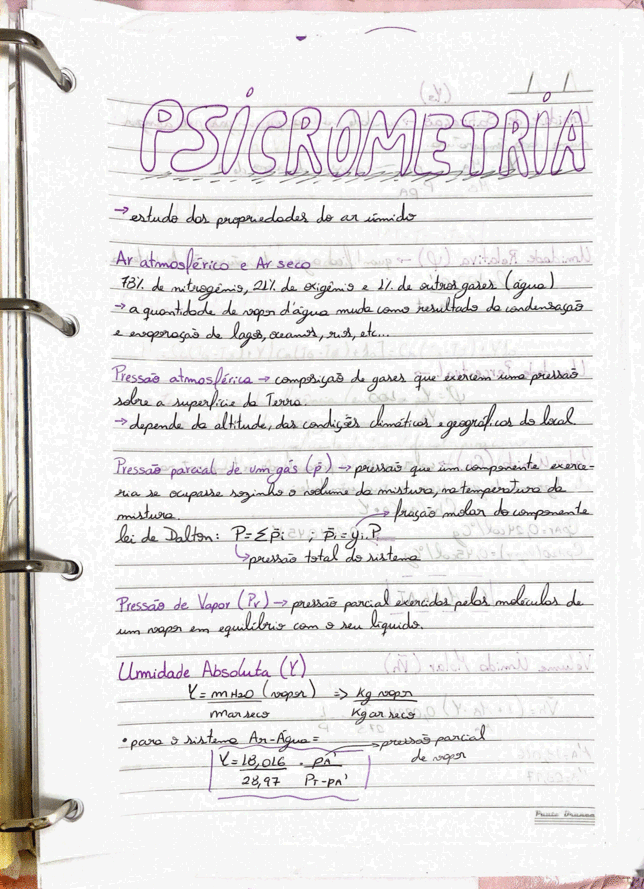 PSÍCROMETRÍA
→ estudo das propriedades do ar úmido
Ar atmosférico e Ar seco
78% de nitrogênio, 21% de oxigênio e 1% de outros gases (água)
→ a quantidade de vapor d'água muda como resultado da condensação
e evaporação de lagos, oceanos, rios, etc...
Pressão atmosférica → composição de gases que exercem uma pressão
sobre a superfície da Terra.
→ depende da altitude, das condições climáticas e geográficas do local.
Pressão parcial de um gás (p̄) → pressão que um componente exerce-
ria se ocupasse sozinho o volume da mistura, na temperatura da
mistura.
→ fração molar do componente
lei de Dalton: P=Σp̄i ; p̄i=yi.P
→ pressão total do sistema
Pressão de Vapor (Pv) → pressão parcial exercidas pelas moléculas de
um vapor em equilíbrio com o seu líquido.
Umidade Absoluta (Y)
Y = mH2O (vapor) => kg vapor
mar seco kg ar seco
• para o sistema Ar-Água =
→ pressão parcial
de vapor
Y = 18,016 . pA'
28,97 PT-pA'